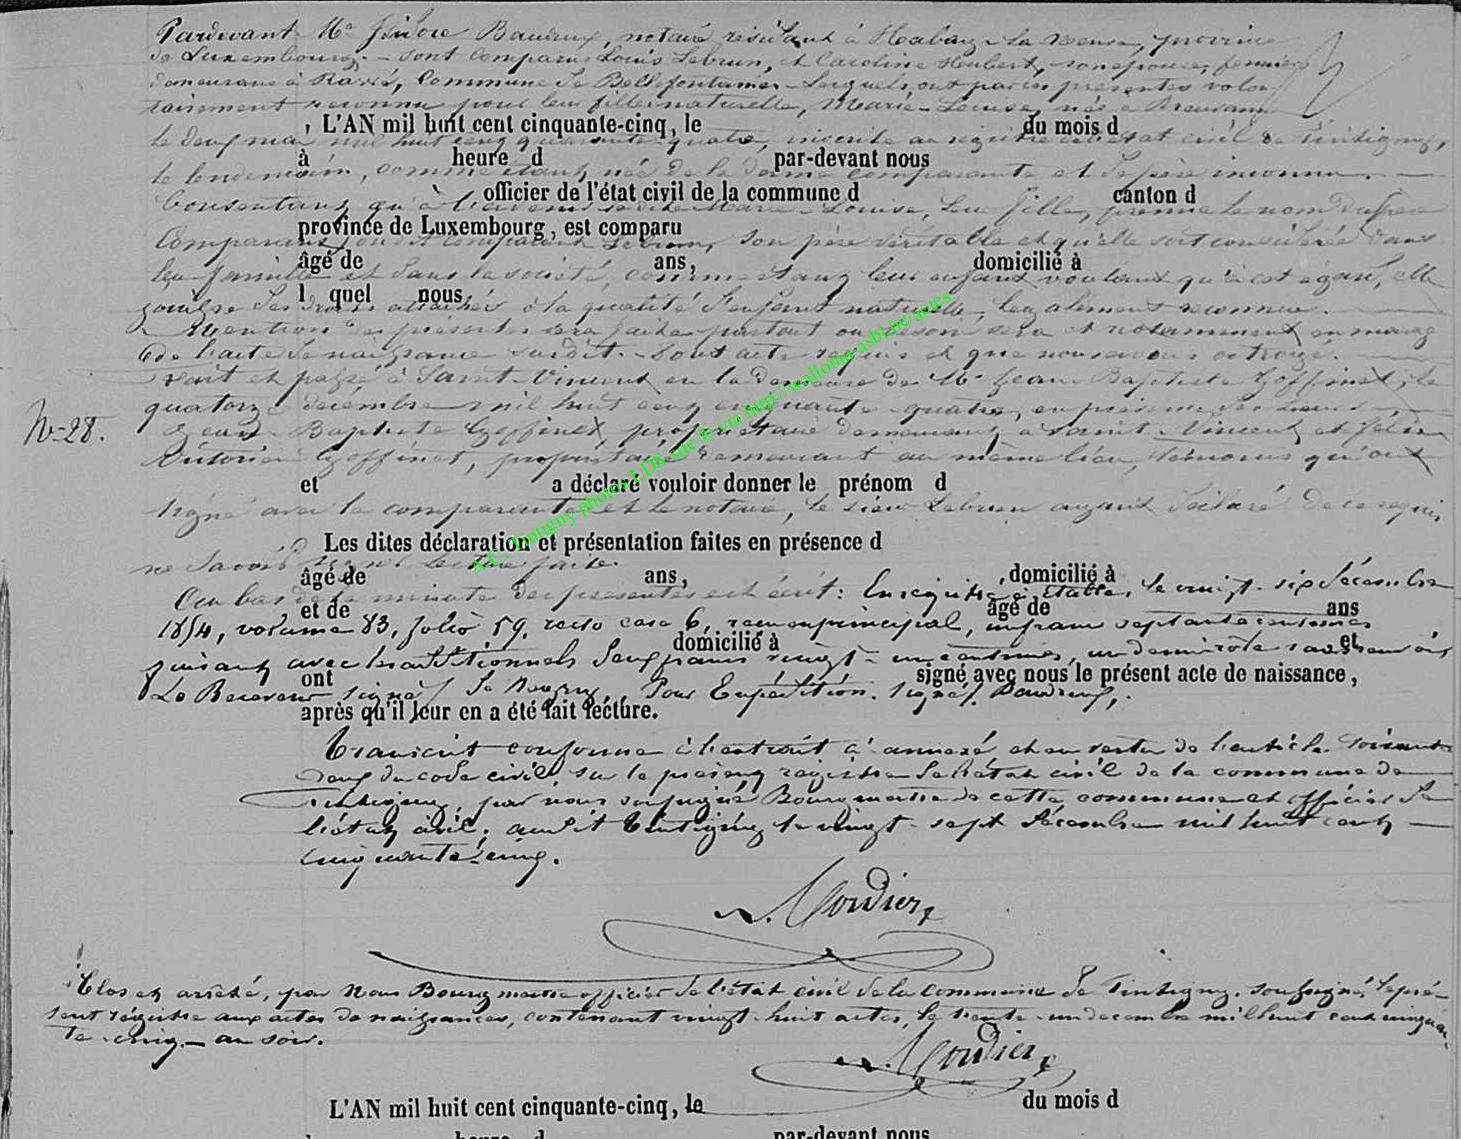 Pardevant Me Isidore Baudrux, notaire résidant à Habay-la-Neuve, province
de Luxembourg. - sont comparus Louis Lebrun, et Caroline Hubert, son épouse, fermiers
demeurans à Commune de Bellefontaine - Lesquels ont par ces présentes volon
tairement reconnu pour leur fille naturelle, Marie-Louise, née à
L'AN mil huit cent cinquante-cinq, le du mois d
le deux mai mil huit cent quarante quatre, inscrite au registre de l'état civil de Tintigny,
à heure d par-devant nous
le lendemain, comme étant née de la dame comparante et de père inconnu.
officier de l'état civil de la commune d canton d
Consentant qu'à l'avenir la dite Marie-Louise, leur fille, prenne le nom du
province de Luxembourg, est comparu
comparant Lebrun, son père véritable et qu'elle soit considérée dans
âgé de ans, domicilié à
leur famille et dans la société, comme étant leur enfant voulant qu'à cet égard, elle
l quel nous
jouisse des droits attachés à la qualité d'enfant naturelle, légalement reconnue.
Mention des présentes sera faite partout où besoin sera et notamment en marge
de l'acte de naissance susdit. - Dont acte requis et que nous avons octroyé.
Fait et passé à Saint-Vincent en la demeure de Mr Jean Baptiste Goffinet, le
quatorze décembre mil huit cent cinquante-quatre, en présence des sieurs
N° 28.
Jean-Baptiste Goffinet, propriétaire demeurant à Saint-Vincent et
Goffinet, propriétaire demeurant au même lieu, témoins qui ont
et a déclaré vouloir donner le prénom d
signé avec la comparante et le notaire, le sieur Lebrun ayant déclaré de ce requis
Les dites déclaration et présentation faites en présence d
ne savoir signer lecture faite.
âgé de ans, domicilié à
Au bas de la minute des présentes est écrit: Enregistré à Etalle, le vingt-six décembre
et de âgé de ans
1854, volume 83, folio 59, recto case 6, reçu en principal, un franc septante centimes
domicilié à et
faisant avec les additionnels deux francs vingt-un centimes, un demi rôle sans renvois
ont signé avec nous le présent acte de naissance,
Le Receveur signé/ Pour Expédition. signé/. Baudrux,.
après qu'il leur en a été fait lecture.
Transcrit conforme à l'extrait ci annexé et en vertu de l'article soixante
deux du code civil, sur le présent registre de l'état civil de la commune de
Tintigny, par nous soussigné Bourgmestre de cette commune et officier de
l'état civil, audit Tintigny le vingt-sept décembre mil huit cent
cinquante-cinq.
Cordier
Clos et arrêté, par Nous Bourgmestre officier de l'état civil de la commune de Tintigny, soussigné, le pré-
sent régistre aux actes de naissances, contenant vingt-huit actes, le trente-un décembre mil huit cent cinquan-
te-cinq. - au soir.
Cordier
L'AN mil huit cent cinquante-cinq, le du mois d
heure d par-devant nous